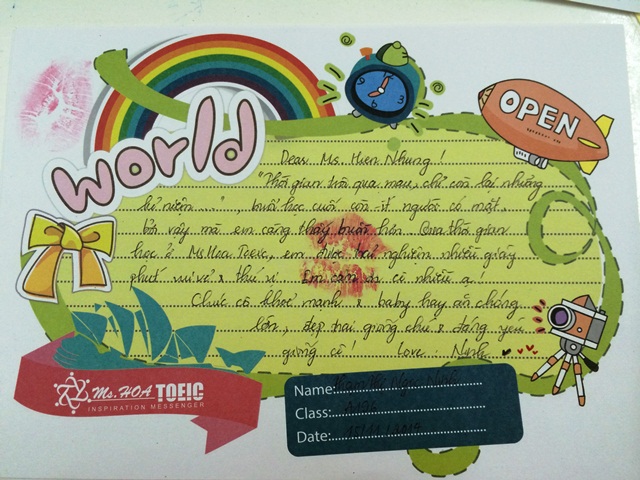 world
OPEN
Dear Ms. Hien Nhung!
"Thời gian trôi qua mau, chỉ còn lại những
kỷ niệm", buổi học cuối còn ít người có mặt
bởi vậy mà em càng thấy buồn hơn. Qua thời gian
học ở Ms Hoa Toeic, em được trải nghiệm nhiều giây
phút vui vẻ & thú vị. Em cảm ơn cô nhiều ạ.
Chúc cô khỏe mạnh & baby hay ăn chóng
lớn, đẹp trai giống chú & đáng yêu
giống cô! Love
Ms. HOA TOEIC
INSPIRATION MESSENGER
Name:
Class:
Date: